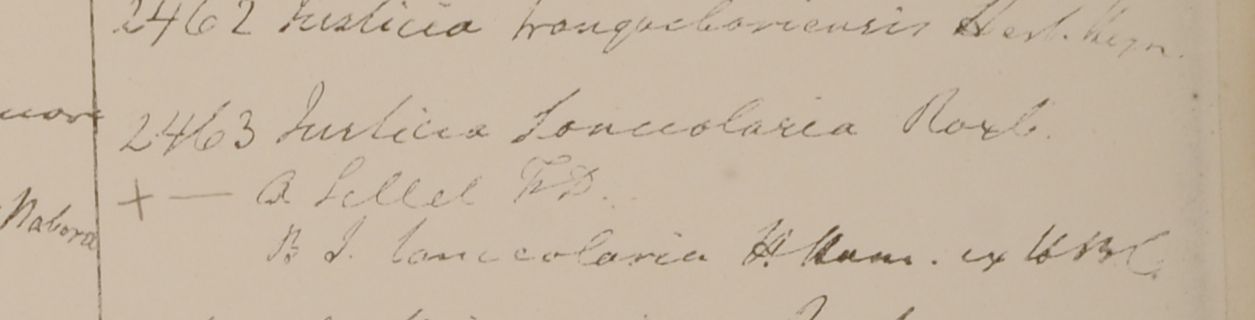 2462 Justicia tranquebariensis Herb. Heyn.
2463 Justicia lanceolaria Roxb.
+ — A Sillet F.D.
Nabora
B J. lanceolaria H. Ham. ex HBC